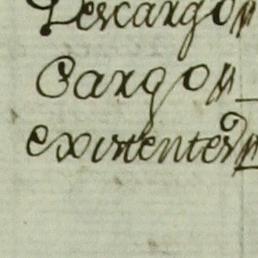 Descargo
Cargo
existentes